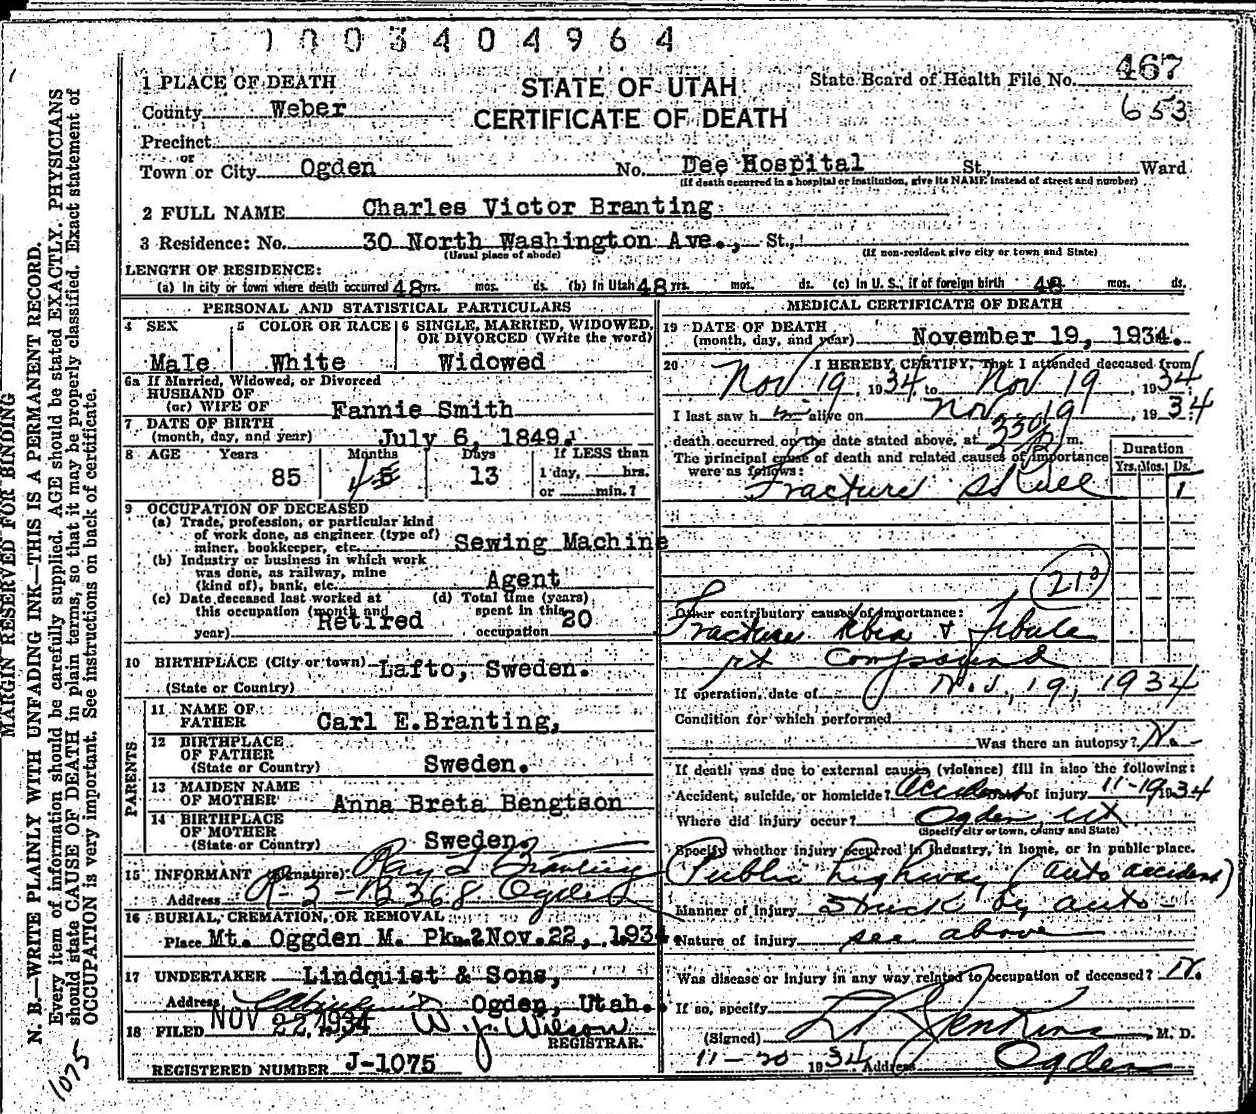 1 0 0 3 4 0 4 9 6 4
1 PLACE OF DEATH
STATE OF UTAH
State Board of Health File No. 467
County Weber
CERTIFICATE OF DEATH
653
Precinct
or
Town or City Ogden No. Dee Hospital St., Ward
(If death occurred in a hospital or institution, give its NAME instead of street and number)
2 FULL NAME Charles Victor Branting
3 Residence: No. 30 North Washington Ave., St.,
(Usual place of abode) (If non-resident give city or town and State)
LENGTH OF RESIDENCE:
(a) In city or town where death occurred 48 yrs. mos. ds. (b) In Utah 48 yrs. mos. ds. (c) In U. S., if of foreign birth 48 mos. ds.
PERSONAL AND STATISTICAL PARTICULARS
4 SEX
Male
5 COLOR OR RACE
White
6 SINGLE, MARRIED, WIDOWED,
OR DIVORCED (Write the word)
Widowed
6a If Married, Widowed, or Divorced
HUSBAND OF
(or) WIFE OF Fannie Smith
7 DATE OF BIRTH
(month, day, and year) July 6, 1849.
8 AGE Years Months Days If LESS than
1 day, hrs.
85 4 5 13
or min.?
9 OCCUPATION OF DECEASED
(a) Trade, profession, or particular kind
of work done, as engineer (type of)
miner, bookkeeper, etc. Sewing Machine
(b) Industry or business in which work
was done, as railway, mine
(kind of), bank, etc. Agent
(c) Date deceased last worked at
this occupation (month and
year) Retired
(d) Total time (years)
spent in this
occupation 20
10 BIRTHPLACE (City or town) Lafto, Sweden.
(State or Country)
PARENTS
11 NAME OF
FATHER Carl E.Branting,
12 BIRTHPLACE
OF FATHER
(State or Country) Sweden.
13 MAIDEN NAME
OF MOTHER Anna Breta Bengtson
14 BIRTHPLACE
OF MOTHER
(State or Country) Sweden.
15 INFORMANT (Signature) Ray L Branting
Address R-3-B368 Ogden
16 BURIAL, CREMATION, OR REMOVAL
Place Mt. Oggden M. Pk. Nov.22, 1934.
17 UNDERTAKER Lindquist & Sons,
Address Ogden, Utah.
18 FILED NOV 22 1934 W. J. Wilson
REGISTRAR.
REGISTERED NUMBER J-1075
MEDICAL CERTIFICATE OF DEATH
19 DATE OF DEATH
(month, day, and year) November 19, 1934.
20 I HEREBY CERTIFY, That I attended deceased from
Nov 19, 1934, to Nov 19, 1934
I last saw him alive on Nov 19, 1934
death occurred on the date stated above, at 330 P. m.
The principal cause of death and related causes of importance
were as follows:
Duration
Yrs. Mos. Ds.
Fracture Skull 1
213
Other contributory causes of importance:
Fracture tibia & fibula
rt compound
If operation, date of Nov, 19, 1934
Condition for which performed
Was there an autopsy? No
If death was due to external causes (violence) fill in also the following:
Accident, suicide, or homicide? Accident of injury 11-19 1934
Where did injury occur? Ogden, Ut
(Specify city or town, county and State)
Specify whether injury occurred in industry, in home, or in public place.
Public highway (auto accident)
Manner of injury Struck by auto
Nature of injury see above
Was disease or injury in any way related to occupation of deceased? No.
If so, specify
(Signed) Jenkins, M. D.
11-20 1934 Address Ogden
MARGIN RESERVED FOR BINDING
N. B.—WRITE PLAINLY WITH UNFADING INK—THIS IS A PERMANENT RECORD.
Every item of information should be carefully supplied. AGE should be stated EXACTLY. PHYSICIANS
should state CAUSE OF DEATH in plain terms, so that it may be properly classified. Exact statement of
OCCUPATION is very important. See instructions on back of certificate.
1075